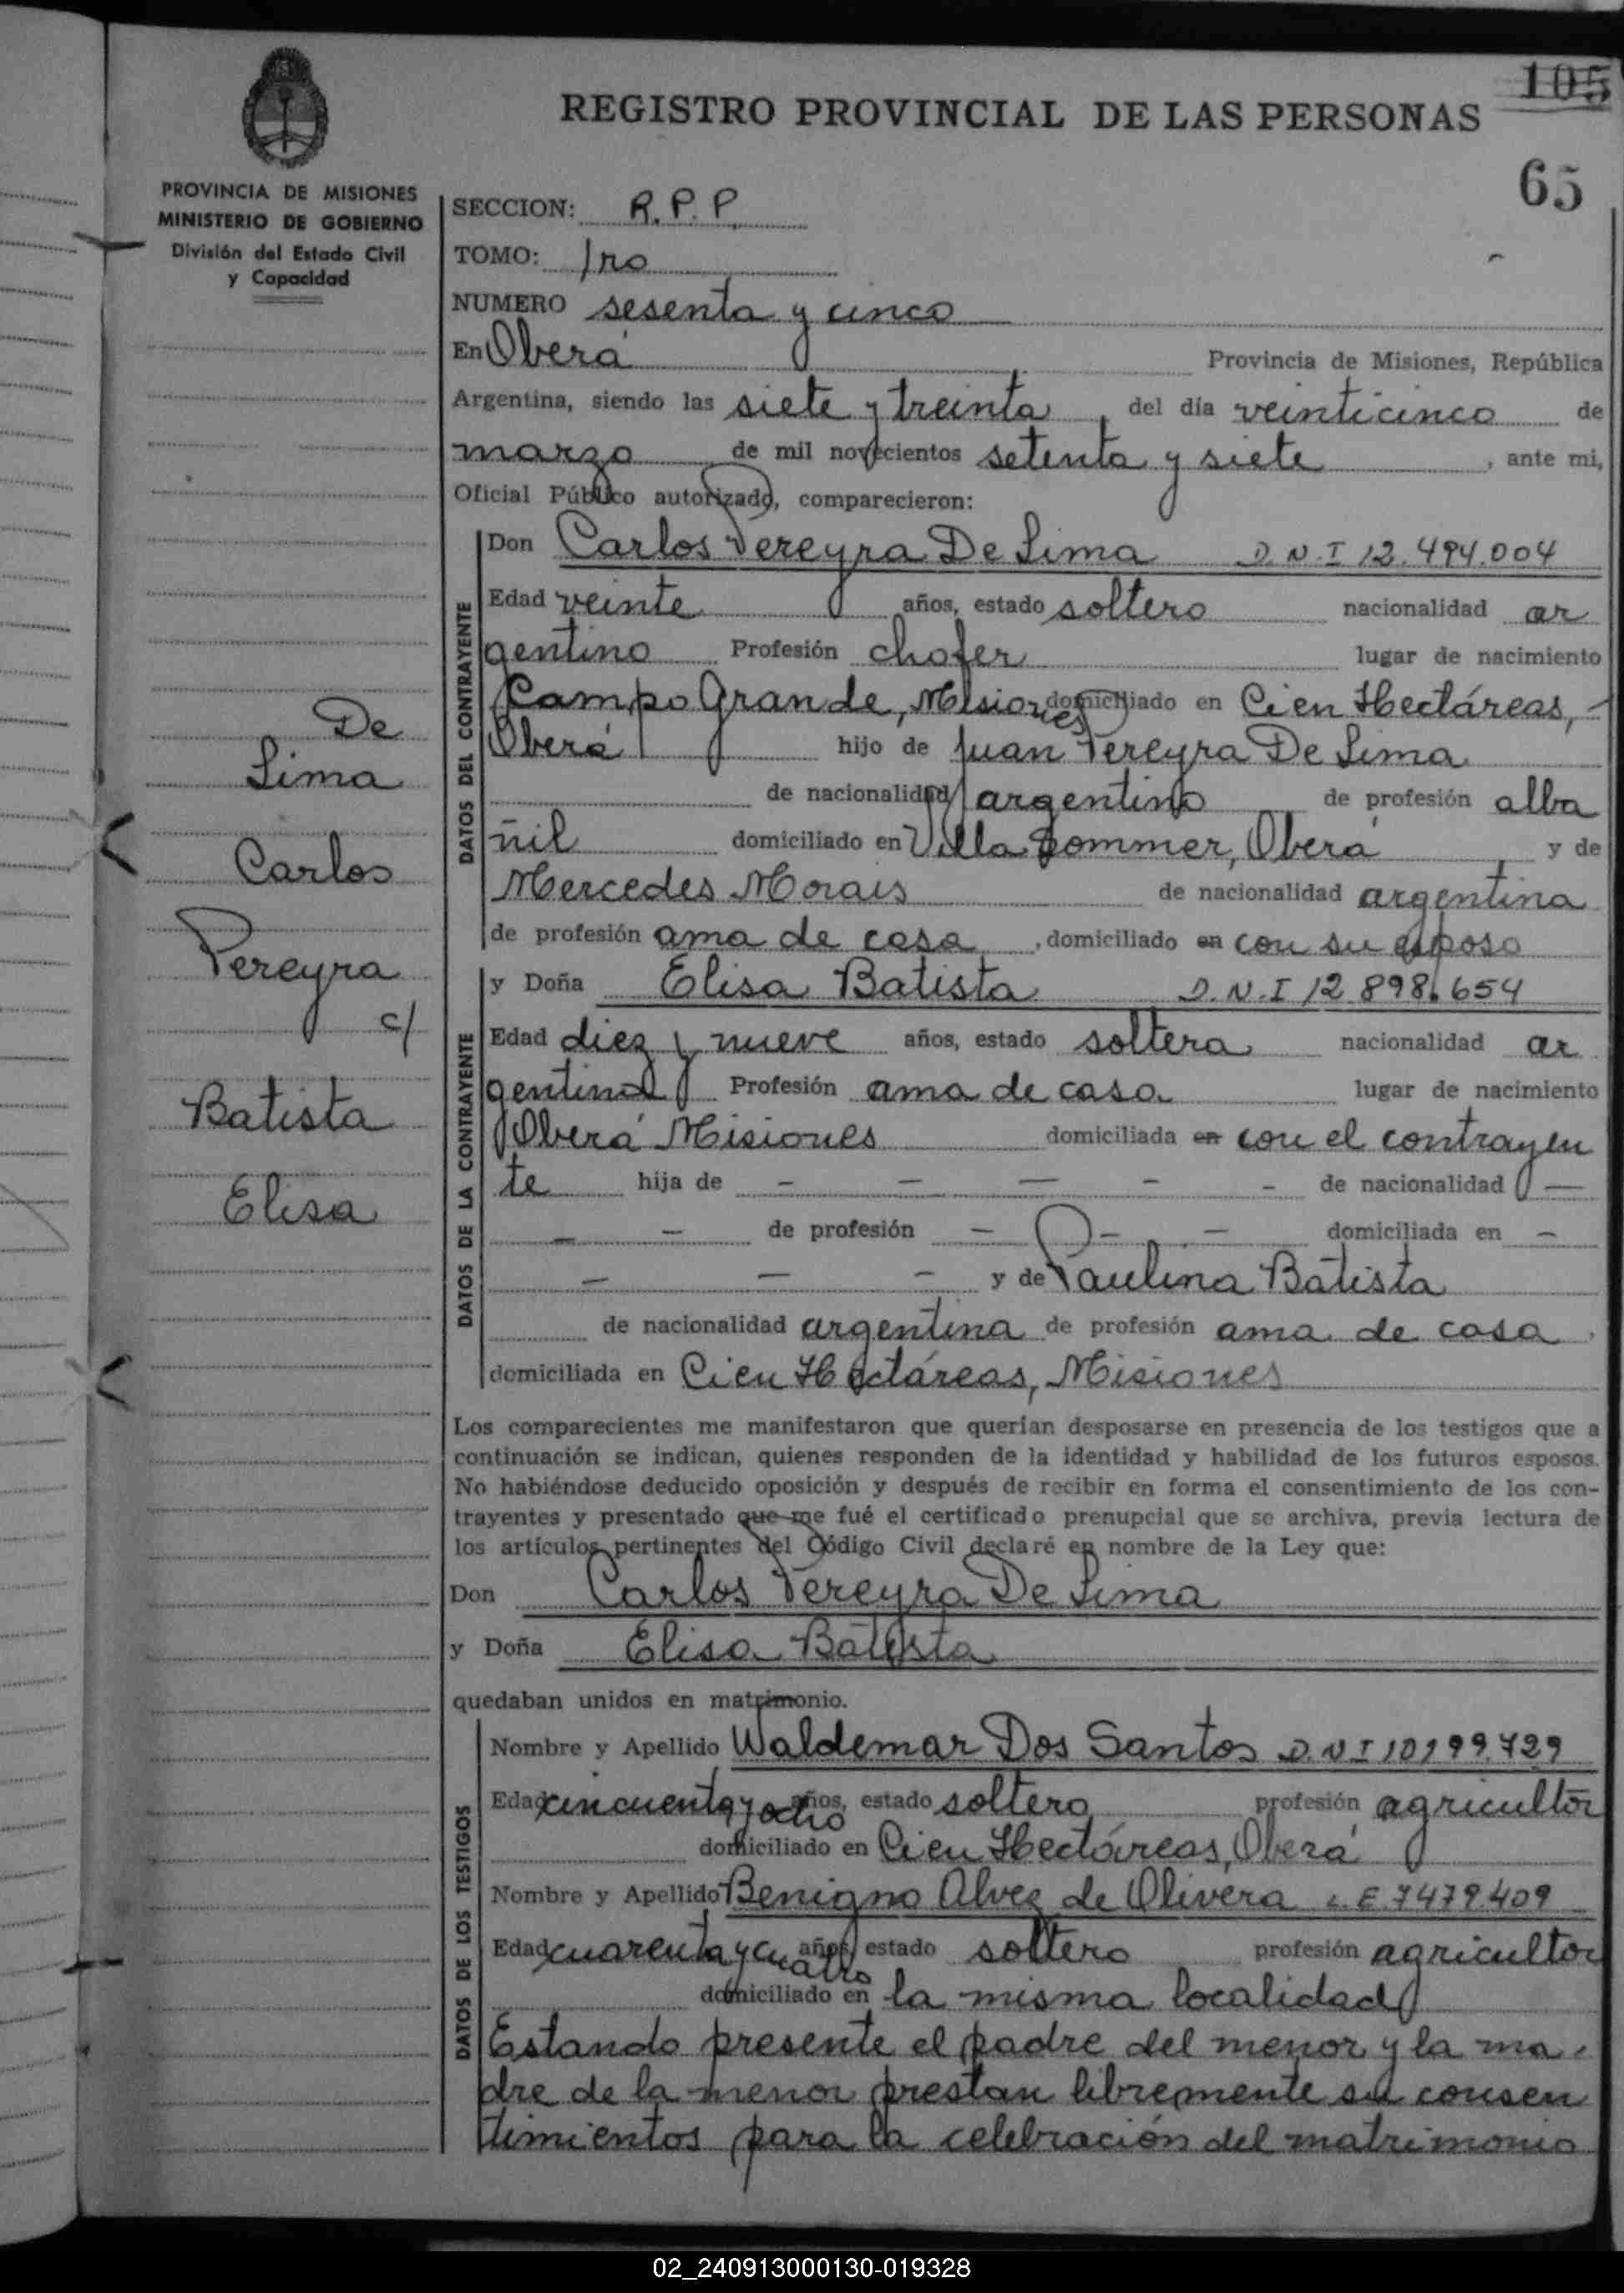 105
REGISTRO PROVINCIAL DE LAS PERSONAS
65
PROVINCIA DE MISIONES
MINISTERIO DE GOBIERNO
División del Estado Civil
y Capacidad
De
Lima
Carlos
Pereyra
c/
Batista
Elisa
SECCION: R.P.P
TOMO: 1ro
NUMERO sesenta y cinco
En Oberá Provincia de Misiones, República
Argentina, siendo las siete y treinta, del día veinticinco de
marzo de mil novecientos setenta y siete, ante mi,
Oficial Público autorizado, comparecieron:
DATOS DEL CONTRAYENTE
Don Carlos Pereyra De Lima D.N.I 12.494.004
Edad veinte años, estado soltero nacionalidad ar
gentino Profesión chofer lugar de nacimiento
Campo Grande, Misiones domiciliado en Cien Hectáreas,
Oberá hijo de Juan Pereyra De Lima
de nacionalidad argentino de profesión alba
ñil domiciliado en Villa Bommer, Oberá y de
Mercedes Morais de nacionalidad argentina
de profesión ama de casa, domiciliado en con su esposo
DATOS DE LA CONTRAYENTE
y Doña Elisa Batista D.N.I 12.898.654
Edad diez y nueve años, estado soltera nacionalidad ar
gentina Profesión ama de casa lugar de nacimiento
Oberá Misiones domiciliada en con el contrayen
te hija de - - - - - de nacionalidad -
- - de profesión - - - domiciliada en -
- - - y de Paulina Batista
de nacionalidad argentina de profesión ama de casa
domiciliada en Cien Hectáreas, Misiones
Los comparecientes me manifestaron que querían desposarse en presencia de los testigos que a
continuación se indican, quienes responden de la identidad y habilidad de los futuros esposos.
No habiéndose deducido oposición y después de recibir en forma el consentimiento de los con-
trayentes y presentado que me fué el certificado prenupcial que se archiva, previa lectura de
los artículos pertinentes del Código Civil declaré en nombre de la Ley que:
Don Carlos Pereyra De Lima
y Doña Elisa Batista
quedaban unidos en matrimonio.
DATOS DE LOS TESTIGOS
Nombre y Apellido Waldemar Dos Santos D.N.I 10199.729
Edad cincuenta y ocho años, estado soltero profesión agricultor
domiciliado en Cien Hectáreas, Oberá
Nombre y Apellido Benigno Alvez de Olivera L.E. 7479.409
Edad cuarenta y cuatro años, estado soltero profesión agricultor
domiciliado en la misma localidad
Estando presente el padre del menor y la ma
dre de la menor prestan libremente su consen
timientos para la celebración del matrimonio
02_240913000130-019328